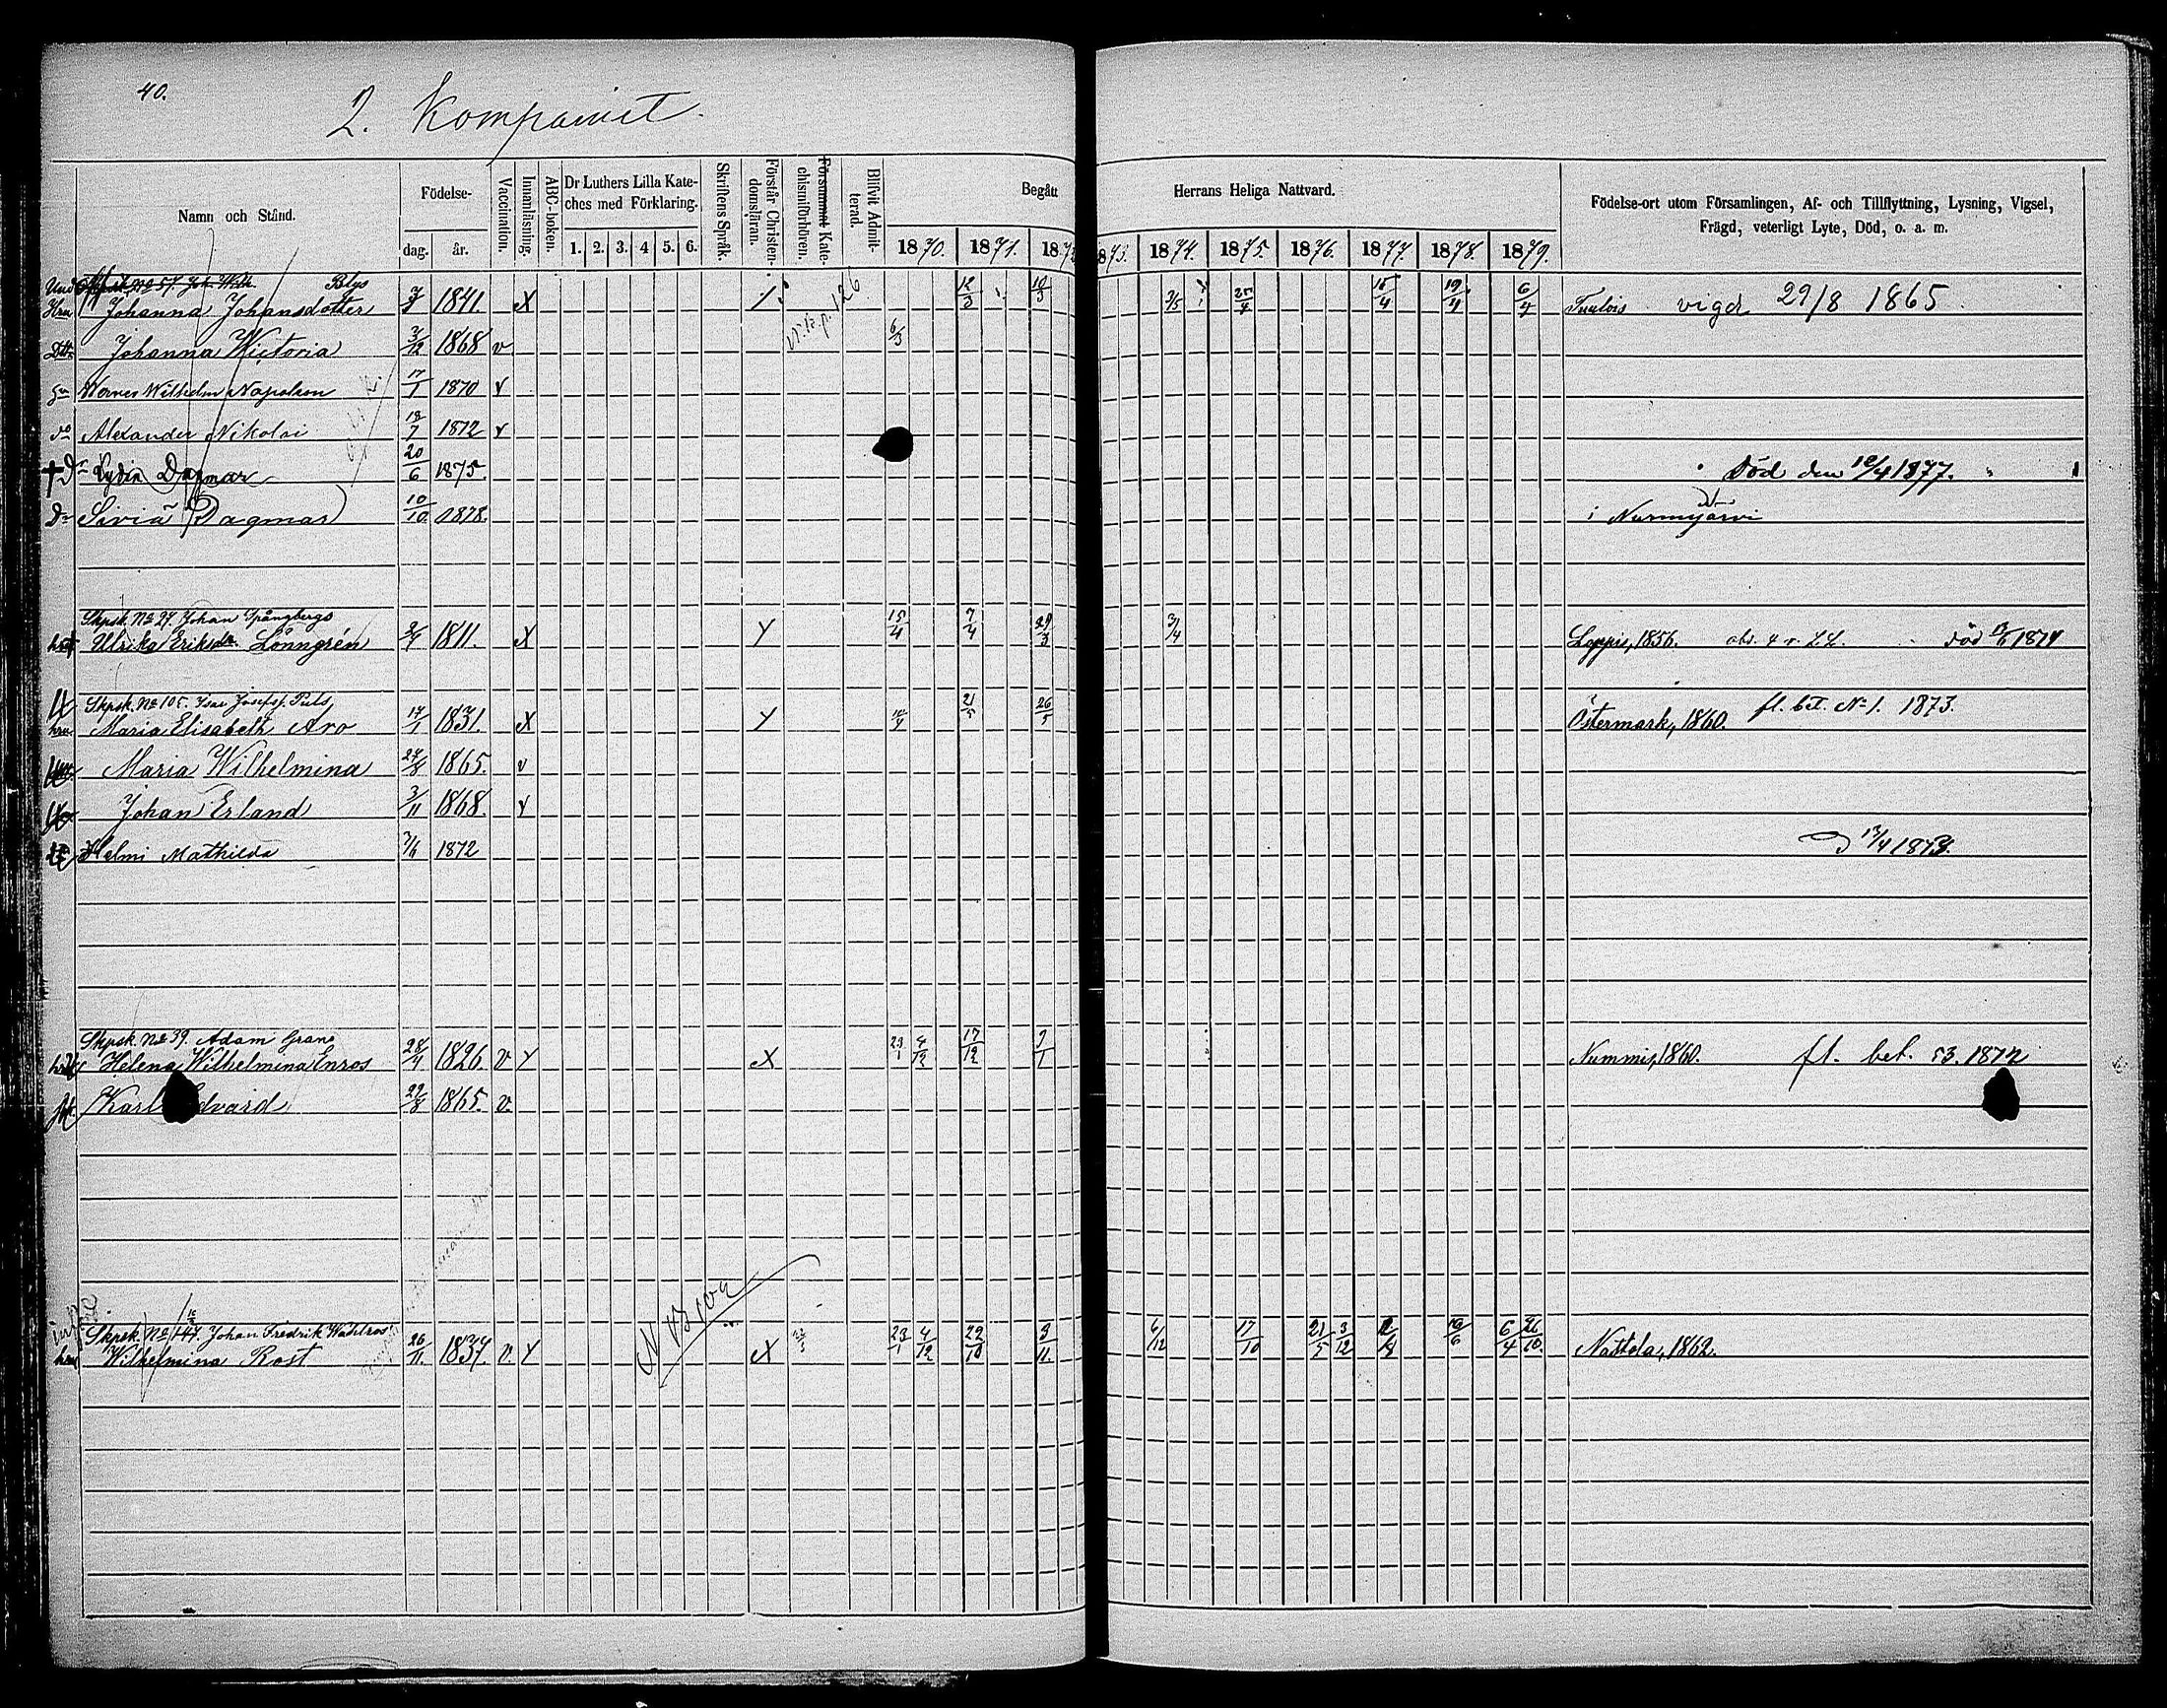 40.
2. Kompaniet.
Namn och Stånd.
Födelse-
dag. år.
Vaccination.
Innanläsning.
ABC-boken.
Dr Luthers Lilla Kate-
ches med Förklaring.
1. 2. 3. 4 5. 6.
Skriftens Språk.
Förstår Christen-
domsläran.
Försummat Kate-
chismiförhören.
Blifvit Admit-
terad.
Begått Herrans Heliga Nattvard.
1870. 1871. 1872 873. 1874. 1875. 1876. 1877. 1878. 1879.
Födelse-ort utom Församlingen, Af- och Tillflyttning, Lysning, Vigsel,
Frägd, veterligt Lyte, Död, o. a. m.
No 57 Joh. Wilh. Blys
Hru Johanna Johansdotter 1841. X 12/3 10/3 3/5 25/4 15/4 19/4 6/4 Tuulois vigd 29/8 1865
p. 126
Johanna Wictoria 3/12 1868 v 6/3
Werner Wilhelm Napoleon 17/1 1870 v
do Alexander Nikolai 18/7 1872 v
† Dr Lydia Dagmar 20/6 1875. Död den 10/4 1877.
Dr Siviä Dagmar 10/10 1878. i Nurmijärvi
Skpsk. No 27. Johan Spångbergs
Ulrika Eriksdr. Lönngrén 1811. X Y 15/4 7/4 29/3 3/4 Loppis, 1856. abs. 4 r. LL. död 1874
Skpsk. No 105. Isac Josefsf. Puls
hru. Maria Elisabeth Aro 17/1 1831. X Y 21/5 26/5 Östermark, 1860. fl. bet. No 1. 1873.
Maria Wilhelmina 24/8 1865. v
Johan Erland 3/11 1868. v
Helmi Mathilda 7/6 1872 D 13/4 1873.
Skpsk. No 39. Adam Grans
Helena Wilhelmina Enros 28/4 1826. v Y X 23/1 4/12 17/12 7/1 Nummis, 1860. fl. bet. 53. 1872
Karl Edvard 29/8 1865. v.
N B 102
Skpsk. No 147. Johan Fredrik Wahlros
hru Wilhelmina Rost 26/11. 1837. v. Y X 23/1 4/12 22/10 3/11. 6/12 17/10 21/5 3/12 12/8 19/6 6/4 26/10. Nastola, 1862.